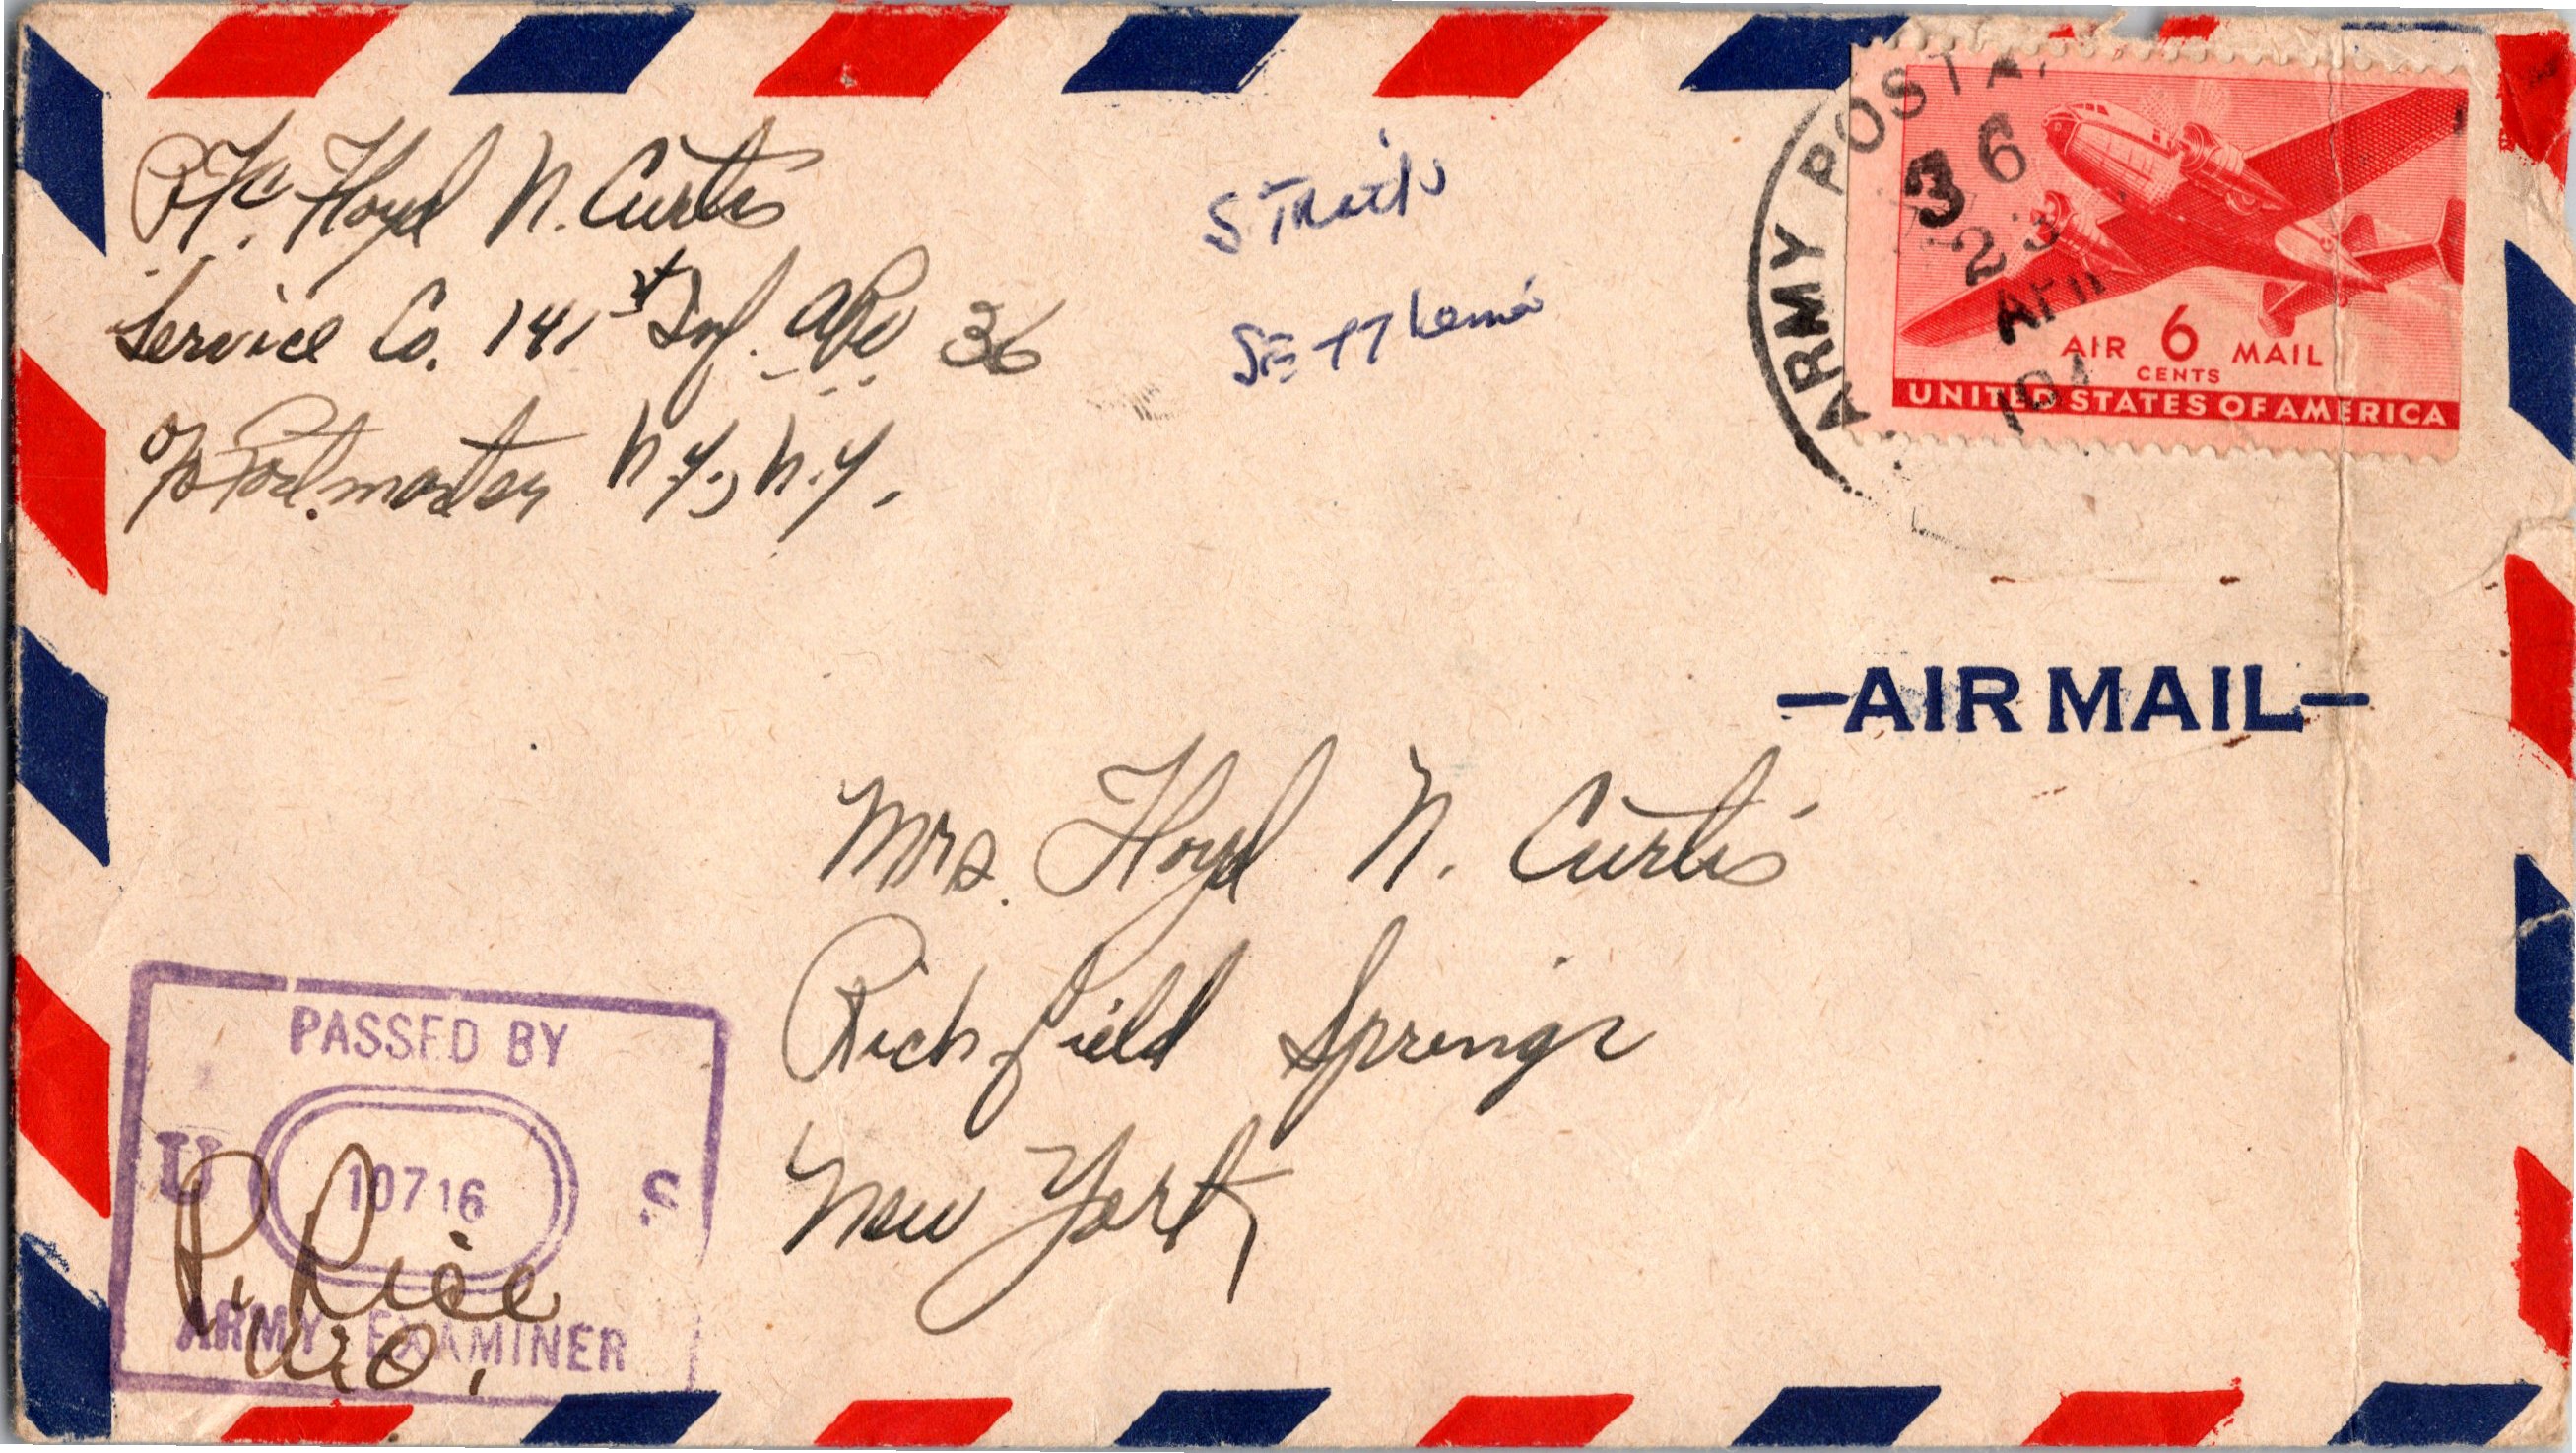 Pfc. Floyd N. Curtis
Service Co. 141st Inf. APO 36
c/o Postmaster N.Y., N.Y.
ARMY POSTAL
36
23
APR
194
AIR 6 MAIL
CENTS
UNITED STATES OF AMERICA
—AIR MAIL—
Mrs. Floyd N. Curtis
Richfield Springs
New York
PASSED BY
U 10716 S
ARMY EXAMINER
P. Rice
W.O.